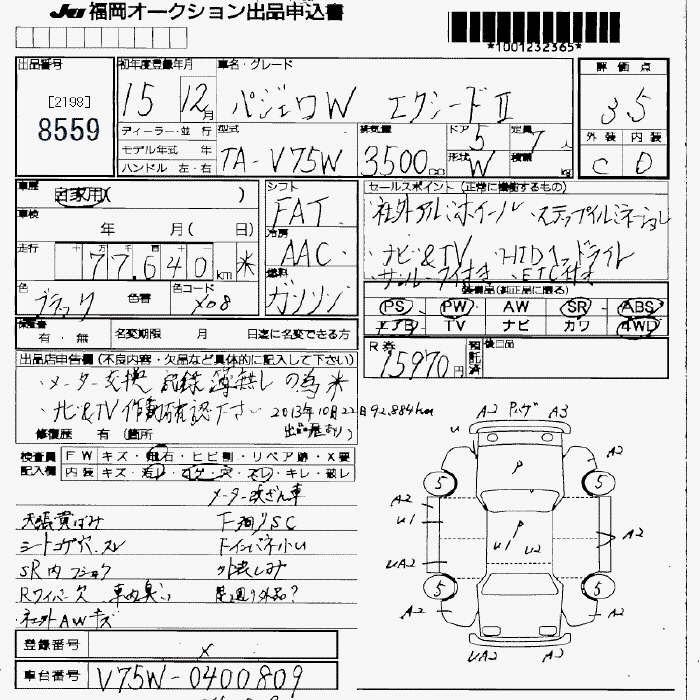 JU 福岡オークション出品申込書
*1001232365*
出品番号
[2198]
8559
初年度登録年月
15 12月
車名・グレード
パジェロW エクシードⅡ
評価点
3.5
外装 内装
C D
ディーラー・並行
モデル年式 年
ハンドル 左・右
型式
TA-V75W
排気量
3500cc
ドア
5
定員
7人
形状
W
積載
kg
車歴
自家用( )
車検
年 月( 日)
走行
十 万 千 百 十
77,640km ※
色
ブラック
色替
色コード
X08
シフト
FAT
冷房
AAC
燃料
ガソリン
セールスポイント(正常に機能するもの)
社外アルミホイール・ステップイルミネーション
・ナビ&TV ・HIDヘッドライト
・サンルーフ付き ・ETC付き
装備品(純正品に限る)
PS PW AW SR ABS
エアB TV ナビ カワ 4WD
保証書
有・無
名変期限 月 日迄に名変できる方
R券
15970円
預託済
後日品
出品店申告欄(不良内容・欠品など具体的に記入して下さい)
・メーター交換 記録簿無しの為※
・ナビ&TV作動確認下さい 2013年10月22日92,884km
修復歴 有(箇所 出品歴あり)
検査員
記入欄
FWキズ・飛石・ヒビ割・リペア跡・X要
内装キズ・汚れ・コゲ・穴・スレ・キレ・破レ
メーター改ざん車
天張黄ばみ
シートコゲ穴、スレ
SR内
Rワイパー欠 車内臭い
社外AWキズ
F廻りSC
Fインパネ小い
足廻り外品?
A2 Pハゲ A3
u
P
5 5
A2
u1
P
u1 u2
A2
uA2
5 5
A2 A2
uA2 A2
登録番号
×
車台番号
V75W-0400809